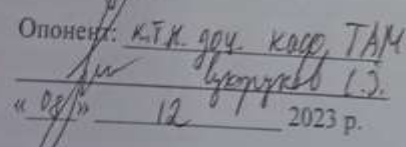 Опонент: к.т.н. доц. каф. ТАМ
Цукруков С.
« 08 » 12 2023 р.